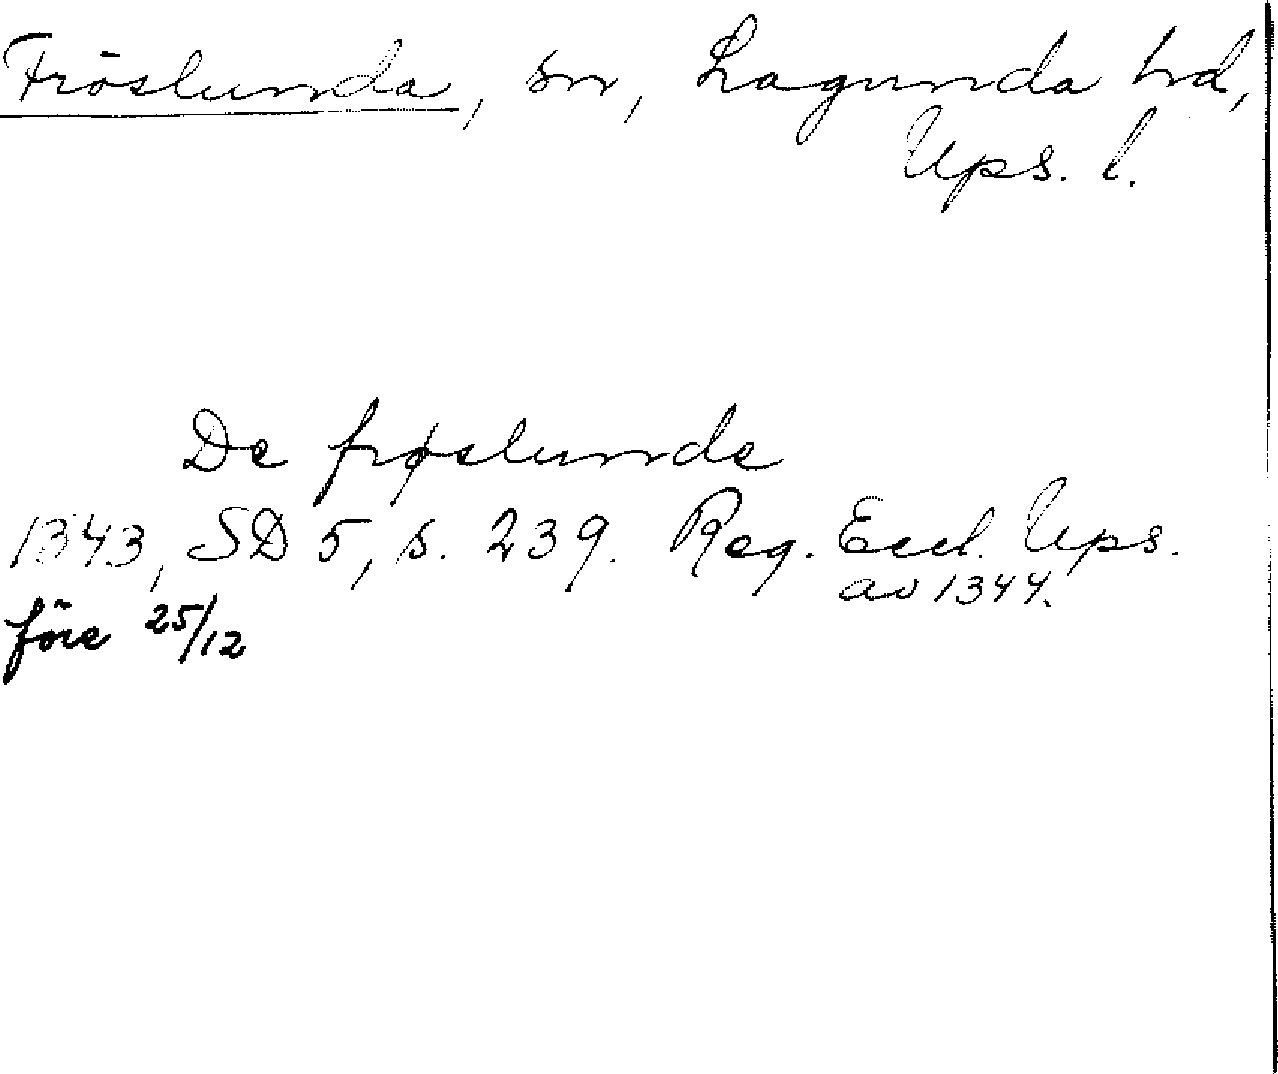 Fröslunda, sn, Lagunda hd,
Ups. l.
De frøslunde
1343, SD 5, s. 239. Reg. Eccl. Ups.
av 1344.
före 25/12